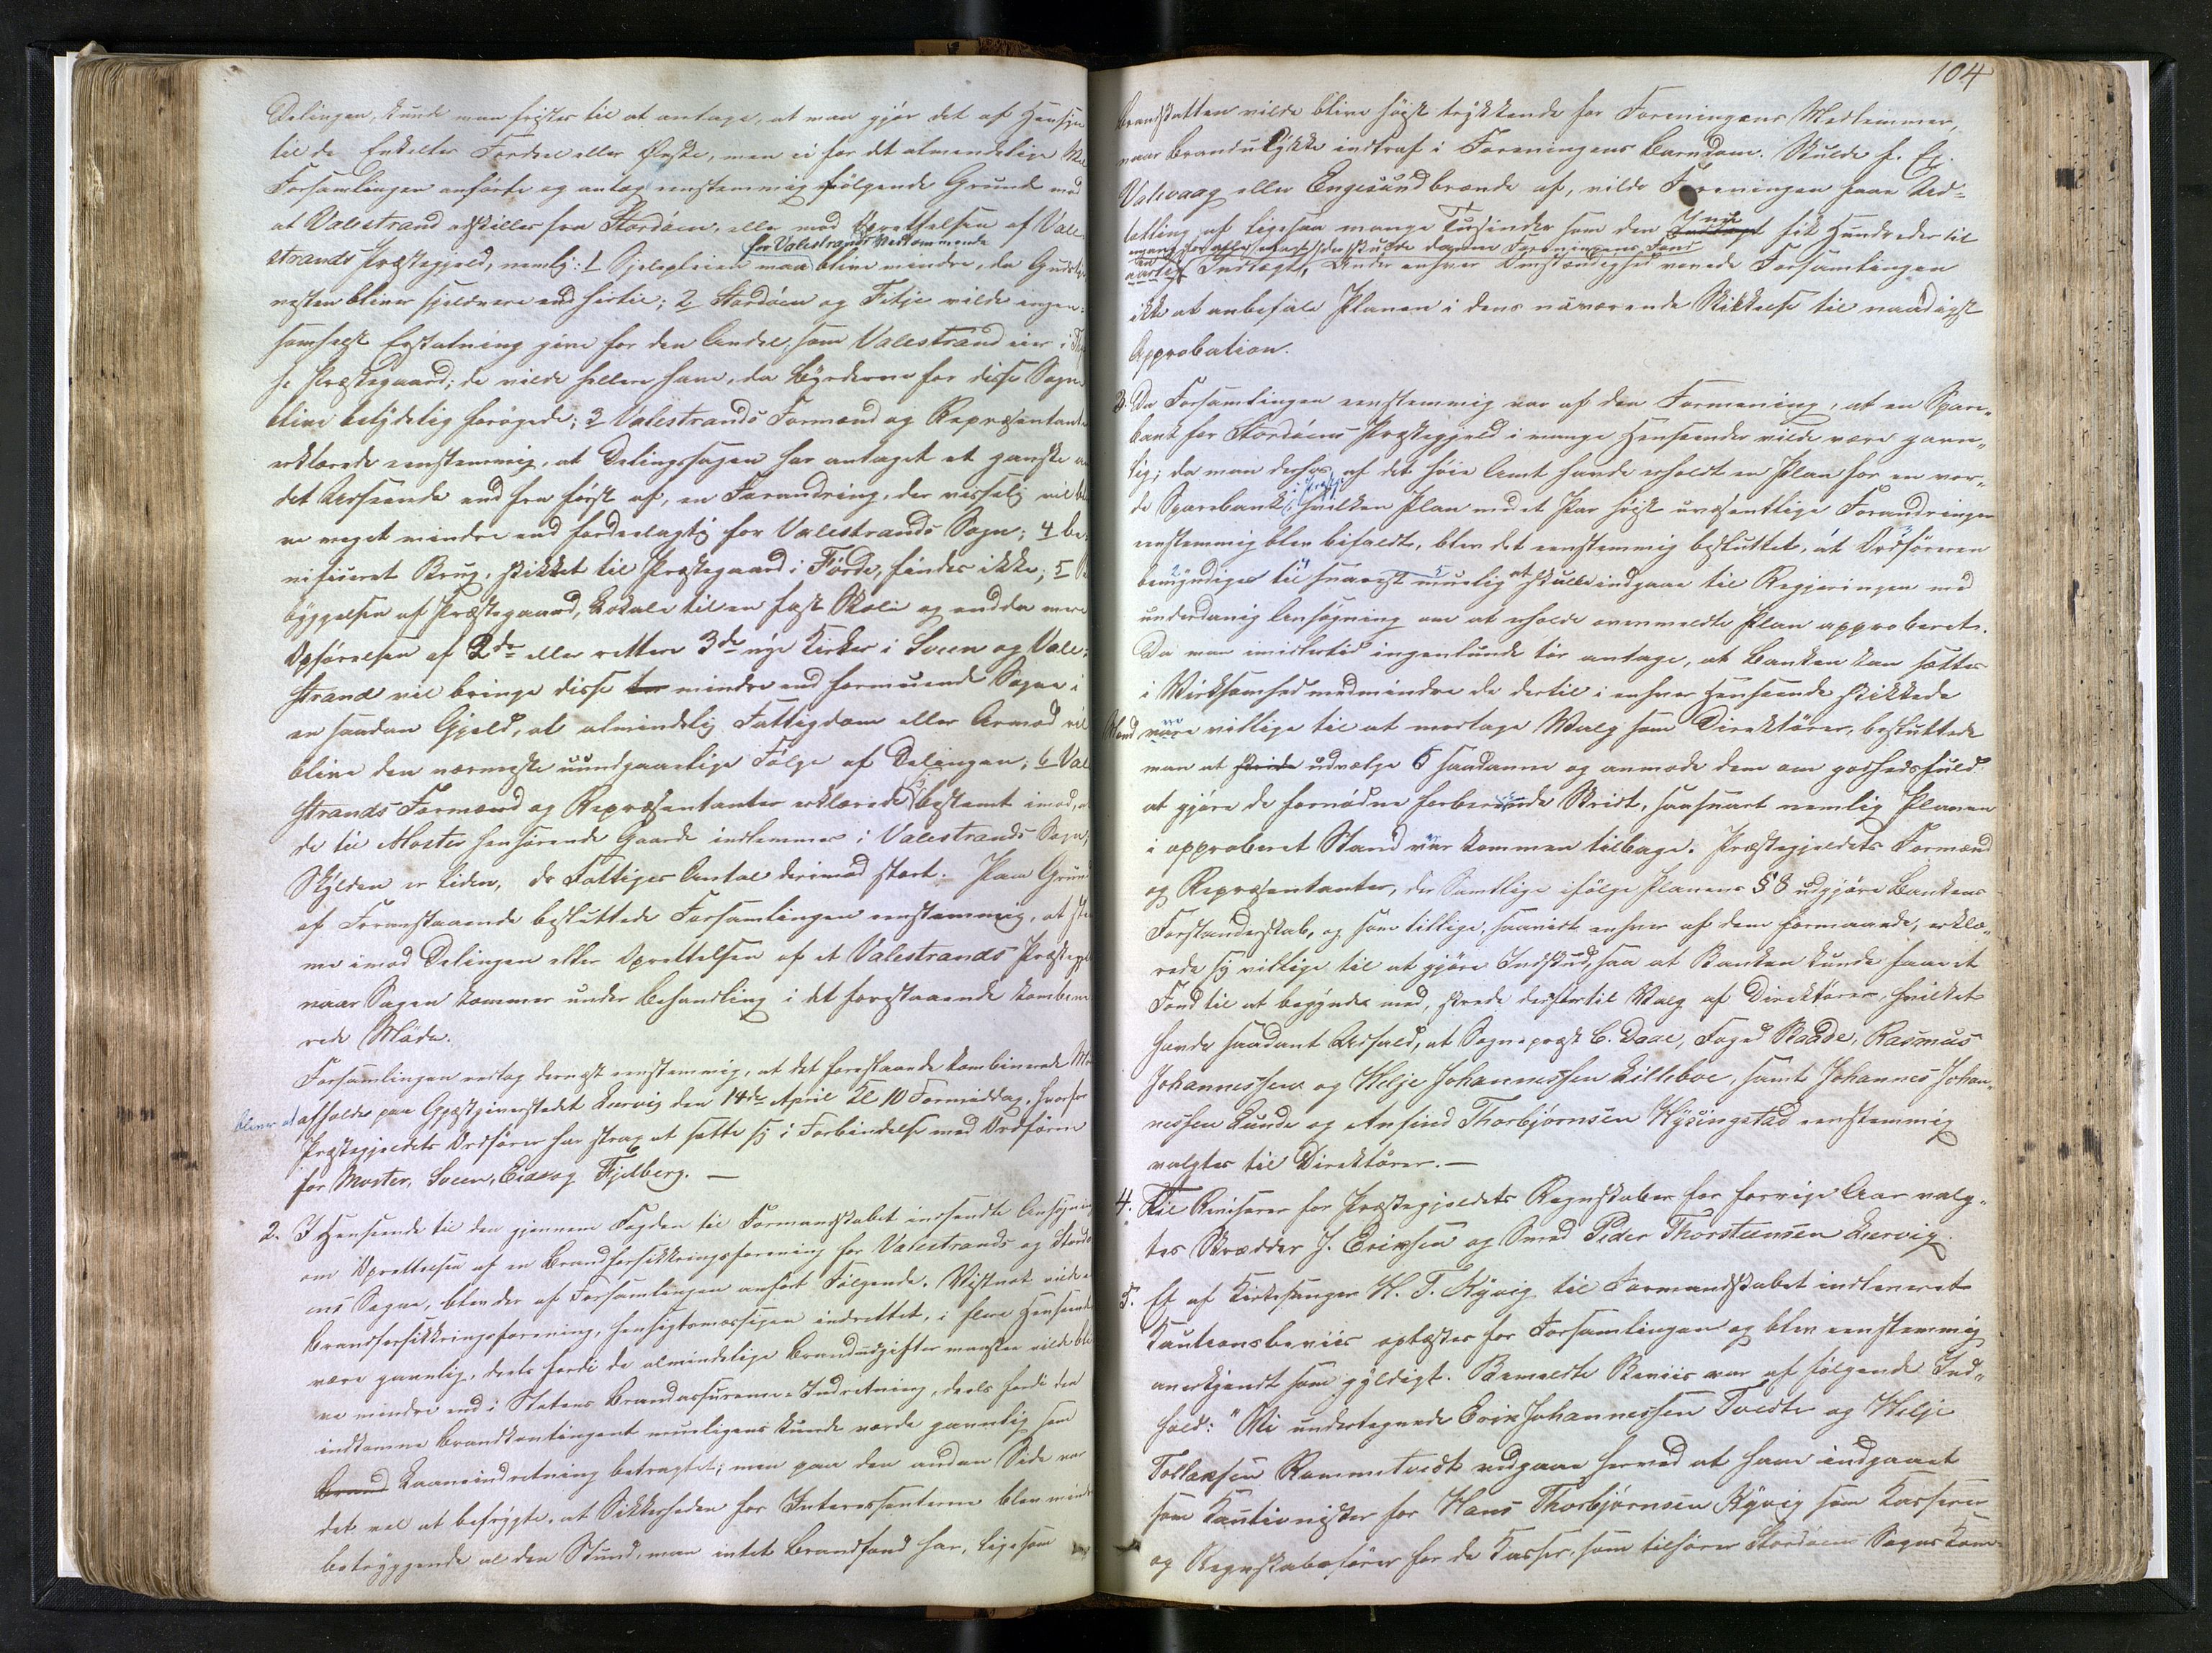 Delingen, kunde man fristes til at antage, at man gjør det af Hensyn
til de Enkeltes Fordeel eller Ønske, men ei for det almindelige
Forsamlingen anførte og antog eenstemmig følgende Grunde mod
at Valestrand adskilles fra Stordøen, eller mod Oprettelsen af Vale-
for Valestrands Vedkommende
strands Præstegjeld, nemlig: 1 Sjelepleien maa blive mindre, da
næsten bliver sjeldnere end hertil; 2 Stordøen og Fitje vilde ingen-
somhelst Erstatning give for den Andel, som Valestrand eier i
se Præstegaard; de vilde hellere have, da Byrderne for disse Sogne
blive betydelig forøgede; 3 Valestrands Formænd og Repræsentanter
erklærede eenstemmig, at Delingssagen har antaget et ganske
det Udseende end fra først af, en Forandring, der visselig vil
re meget mindre end fordeelagtig for Valestrands Sogn; 4 be-
nificeret Brug, skikket til Præstegaard i Förde, findes ikke; 5
byggelsen af Præstegaard, Lokale til en fast Skole og endda mere
Opførelsen af 2de eller rettere 3de nye Kirker i Sveen og Vale-
strand vil bringe disse mindre end formuende Sogne i
en saadan Gjeld, at almindelig Fattigdom eller Armod vil
blive den nærmeste uundgaaelige Følge af Delingen; 6 Val
strands Formænd og Repræsentanter erklærede sig bestemt imod, at
de til Moster henhørende Gaarde indlemmes i Valestrands Sogn,
Skylden er liden, de Fattiges Antal derimod stort. Paa Grund
af Foranstaaende besluttede Forsamlingen eenstemmig, at
me imod Delingen eller Oprettelsen af et Valestrands
naar Sagen kommer under Behandling i det forestaaende kombine
rede Møde.
Forsamlingen vedtog dernæst eenstemmig, at det forestaaende kombinerede
bliver at afholde paa Gjæstgiverstedet Leervig den 14de April Kl 10 Formiddag, hvorfor
Præstegjeldets Ordfører har strax at sætte sig i Forbindelse med Ordførerne
for Moster, Sveen, Eid og Fjelberg. —
2. I Henseende til den gjennem Fogden til Formandskabet indsendte Ansøgning
om Oprettelsen af en Brandforsikkringsforening for Valestrands og Stordø
ens Sogne, blev der af Forsamlingen anført Følgende. Vistnok vilde en
Brandforsikkringsforening, hensigtsmæssigen indrettet, i flere Henseender
være gavnlig, deels fordi de almindelige Brandudgifter maaskee vilde bli
ve mindre end i Statens Brandassurance-Indretning, deels fordi den
indkomne Brandkontingent mueligens kunde vorde gavnlig som
Brand Laaneindretning betragtet; men paa den anden Side var
det vel at befrygte, at Sikkerheden for Interessenterne blev mindre
betryggende al den Stund, man intet Brandfond har, ligesom
104
Brandskatten vilde blive høist trykkende for Foreningens Medlemmer,
naar Brandulykke indtraf i Foreningens Barndom. Skulde f. Ex.
Valevaag eller Engesund brænde af, vilde Foreningen faae Ud-
tælling af ligesaa mange Tusinder som den fik Hundreder til
skulde danne Foreningens Fond
aarlig Indtægt. Under enhver Omstændighed vovede Forsamlingen
ikke at anbefale Planen i dens nuværende Skikkelse til naadigst
Approbation.
3. Da Forsamlingen eenstemmig var af den Formening, at en Spare-
bank for Stordøens Præstegjeld i mange Henseender vilde være gavn-
lig; da man derhos af det høie Amt havde erholdt en Plan for en vor-
de Sparebank, hvilken Plan med et Par høist uvæsentlige Forandringer
eenstemmig blev bifaldt, blev det eenstemmig besluttet, at Ordføreren
bemyndiges til snarest muelig at skulle indgaae til Regjeringen med
underdanig Ansøgning om at erholde ovenmeldte Plan approberet.
Da man imidlertid ingenlunde tør antage, at Banken kan sættes
i Virksomhed medmindre de dertil i enhver Henseende skikkede
Mænd være villige til at modtage Valg som Direktører, besluttede
man at skride udvælge 5 saadanne og anmode dem om godhedsfuld
at gjøre de fornødne forberedende Skridt, saasnart nemlig Planen
i approberet Stand var kommen tilbage. Præstegjeldets Formænd
og Repræsentanter, der Samtlige ifølge Planens § 8 udgjøre Bankens
Forstanderskab, og som tillige, saavidt enhver af dem formaaede, erklæ-
rede sig villige til at gjøre Indskud, saa at Banken kunde faae et
Fond til at begynde med, skred derfor til Valg af Direktører, hvilket
havde saadant Udfald, at Sogneprest C. Daae, Foged Raade, Rasmus
Johannessen og Helje Johannessen Lillebøe, samt Johannes Johan-
nessen Lunde og Ansind Thorbjørnsen Hysingstad eenstemmig
valgtes til Direktører. —
4. Til Revisorer for Præstegjeldets Regnskaber for forrige Aar valg-
tes Skrædder J. Eriksen og Smed Peder Thorsteensen Leervig.
5. Et af Kirkesanger H. T. Kyvig til Formandskabet indleveret
Kautionsbeviis oplæstes for Forsamlingen og blev eenstemmig
anerkjendt som gyldigt. Bemeldte Beviis var af følgende Ind-
hold: "Vi undertegnede Erik Johannessen Tvedte og Helje
Tollaksen Rommetvedt vedgaae herved at have indgaaet
som Kautionister for Hans Thorbjørnsen Kyvig som Kasserer
og Regnskabsfører for de Kasser, som tilhører Stordøens Sogns Kom-